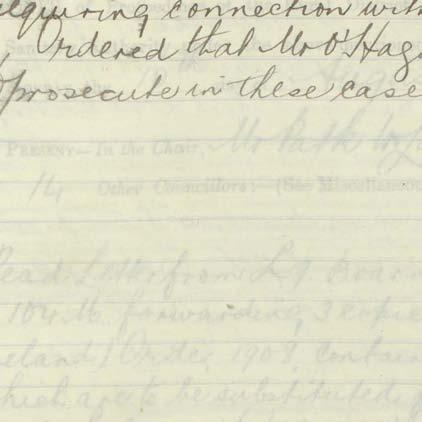 acquiring connection with
, Ordered that Mr O'Hag
prosecute in these case
PRESENT—In the Chair, Mr Patk
14 Other Councillors:— (See Miscellaneous
Read Letter from L G Board
104 M forwarding 3 copie
reland) Order, 1908, contain
which are to be substituted